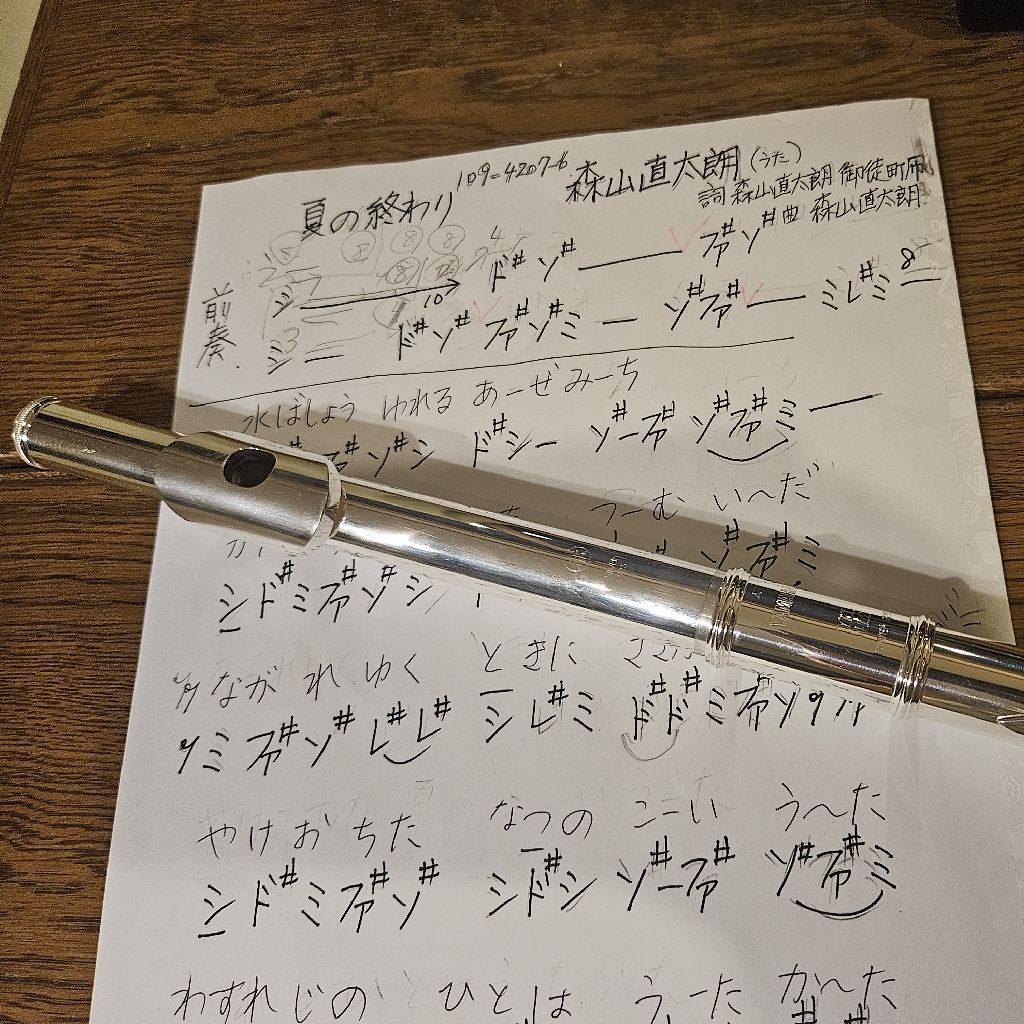 夏の終わり 109-4207-6 森山直太朗 (うた)
詞 森山直太朗 御徒町凧
曲 森山直太朗
前奏. シ 10 ド# ソ# ファ# ソ#
シ ド# ソ# ファ# ソ# ミ ー ソ# ファ# ー ミ レ# ミ 8
水ばしょう ゆれる あーぜみーち
ファ# ソ# シ ド# シ ー ソ# ー ファ# ソ# ファ# ミ ー
うーむ い〜だ
ソ# ファ# ミ
シ ド# ミ ファ# ソ# シ
ながれ ゆく ときに
ミ ファ# ソ# レ# レ# シ レ# ミ ド# ド# ミ ファ# ソ
やけ おちた なつの こーい う〜た
シ ド# ミ ファ# ソ# シ ド# シ ソ# ー ファ# ソ# ファ# ミ
わすれじの ひとは うーた か〜た